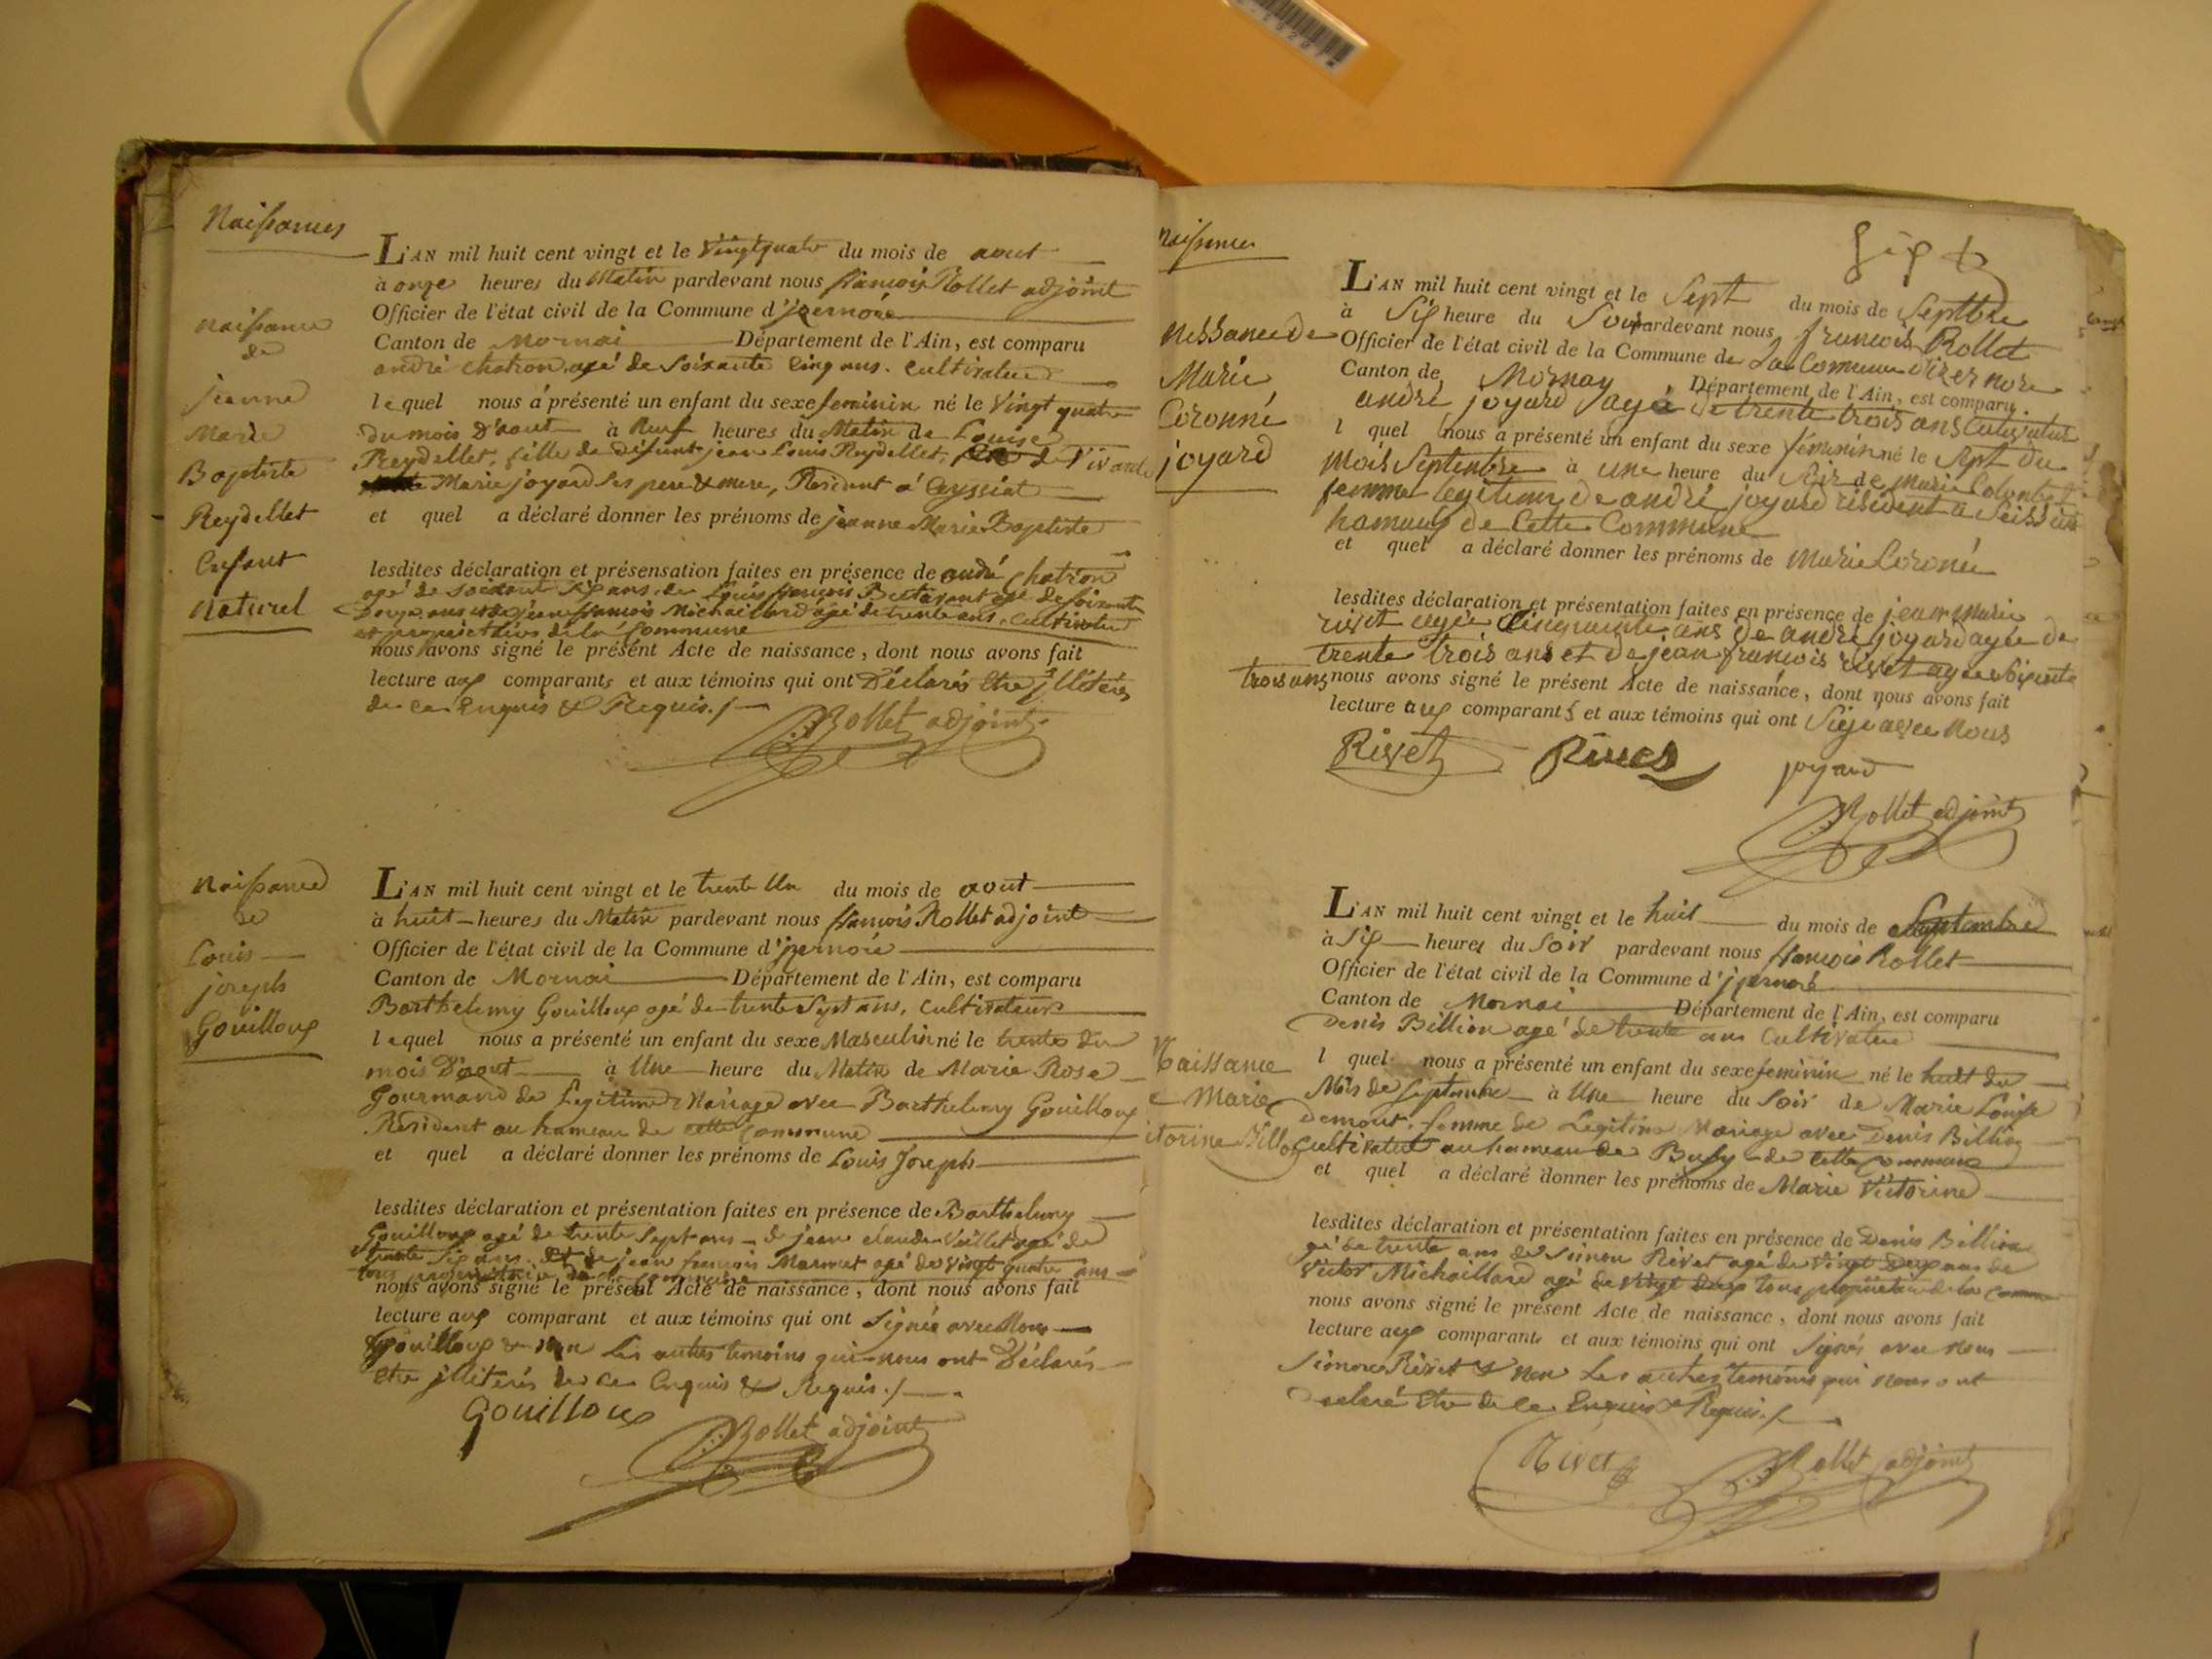 Naissances
L'AN mil huit cent vingt et le vingtquatre du mois de aout
à onze heures du Matin pardevant nous françois Rollet adjoint
Officier de l'état civil de la Commune d'jzernore
Canton de Mornai Département de l'Ain, est comparu
andré chatron agé de soixante cinq ans. cultivateur
lequel nous a présenté un enfant du sexe feminin né le vingt quatre
du mois D'aout à neuf heures du Matin de Louise
Reydellet, fille de défunt jean Louis Reydellet, de vivante
Marie joyard ses pere & mere, Résident à Ceyssiat
et quel a déclaré donner les prénoms de jeanne Marie Baptiste
lesdites déclaration et présensation faites en présence de andré chatron
agé de soixante six ans, de Louis françois agé de soixante
douze ans et de jean françois Michaillard agé de trente ans, cultivateur
et proprietaires de la commune
nous avons signé le présent Acte de naissance, dont nous avons fait
lecture aux comparants et aux témoins qui ont Déclarés être jlliterés
de ce Enquis & Requis./.
Rollet adjoint
naissance
de
jeanne
Marie
Baptiste
Reydellet
Enfant
naturel
naissance
de
Louis
joseph
Gouilloux
L'AN mil huit cent vingt et le trente Un du mois de aout
à huit heures du Matin pardevant nous françois Rollet adjoint
Officier de l'état civil de la Commune d'jzernore
Canton de Mornai Département de l'Ain, est comparu
Barthelemy Gouilloux agé de trente Sept ans, cultivateur
lequel nous a présenté un enfant du sexe Masculin né le trente du
mois D'aout à Une heure du Matin de Marie Rose
Gourmand de Legitime Mariage avec Barthelemy Gouilloux
Résident au hameau de cette commune
et quel a déclaré donner les prénoms de Louis Joseph
lesdites déclaration et présentation faites en présence de Barthelemy
Gouilloux agé de trente Sept ans de jean claude Vuillet agé de
trente six ans et de jean françois Mermet agé de vingt quatre ans
tous proprietaires de la commune
nous avons signé le présent Acte de naissance, dont nous avons fait
lecture aux comparant et aux témoins qui ont Signés avec Nous
Gouilloux & non Les autres temoins qui nous ont Déclarés
être jlliterés de ce Enquis & Requis./.
Gouilloux
Rollet adjoint
naissances
L'AN mil huit cent vingt et le Sept du mois de Septbre
à Six heure du Soir pardevant nous françois Rollet
Officier de l'état civil de la Commune de La Comune dizernore
Canton de Mornay Département de l'Ain, est comparu
andré joyard agé de trente trois ans cultivatur
l quel nous a présenté un enfant du sexe féminin né le sept du
mois Septenbre à une heure du soir de marie Colonbet
femme legitime de andré joyard résident a Seissiat
hamaux de Cette Commune
et quel a déclaré donner les prénoms de Marie Coronné
lesdites déclaration et présentation faites en présence de jean marie
rivet agée Cinquante ans de andré joyard agée de
trente trois ans et de jean françois rivet agée soixente
trois ans nous avons signé le présent Acte de naissance, dont nous avons fait
lecture aux comparants et aux témoins qui ont Signe avec Nous
Rivet joyard
Rollet adjoint
nessance de
Marie
Coronné
joyard
L'AN mil huit cent vingt et le huit du mois de Septembre
à Six heures du Soir pardevant nous françois Rollet
Officier de l'état civil de la Commune d'jzernore
Canton de Mornai Département de l'Ain, est comparu
Denis Billion agé de trente ans Cultivateur
l quel nous a présenté un enfant du sexe feminin né le huit du
Mois de Septembre à Une heure du Soir de Marie Louise
Demont, femme de Legitime Mariage avec Denis Billion
Cultivateur au hameau de Bussy de cette commune
et quel a déclaré donner les prénoms de Marie Victorine
lesdites déclaration et présentation faites en présence de Denis Billion
gé de trente ans de Simon Rivet agé de vingt deux ans de
Victor Michaillard agé de vingt deux tous proprietaires de la commune
nous avons signé le présent Acte de naissance, dont nous avons fait
lecture aux comparants et aux témoins qui ont Signés avec nous
Simon Rivet & non Les autres temoins qui nous ont
declaré être de ce Enquis & Requis./.
Rivet
Rollet adjoint
Naissance
e Marie
ictorine Billon